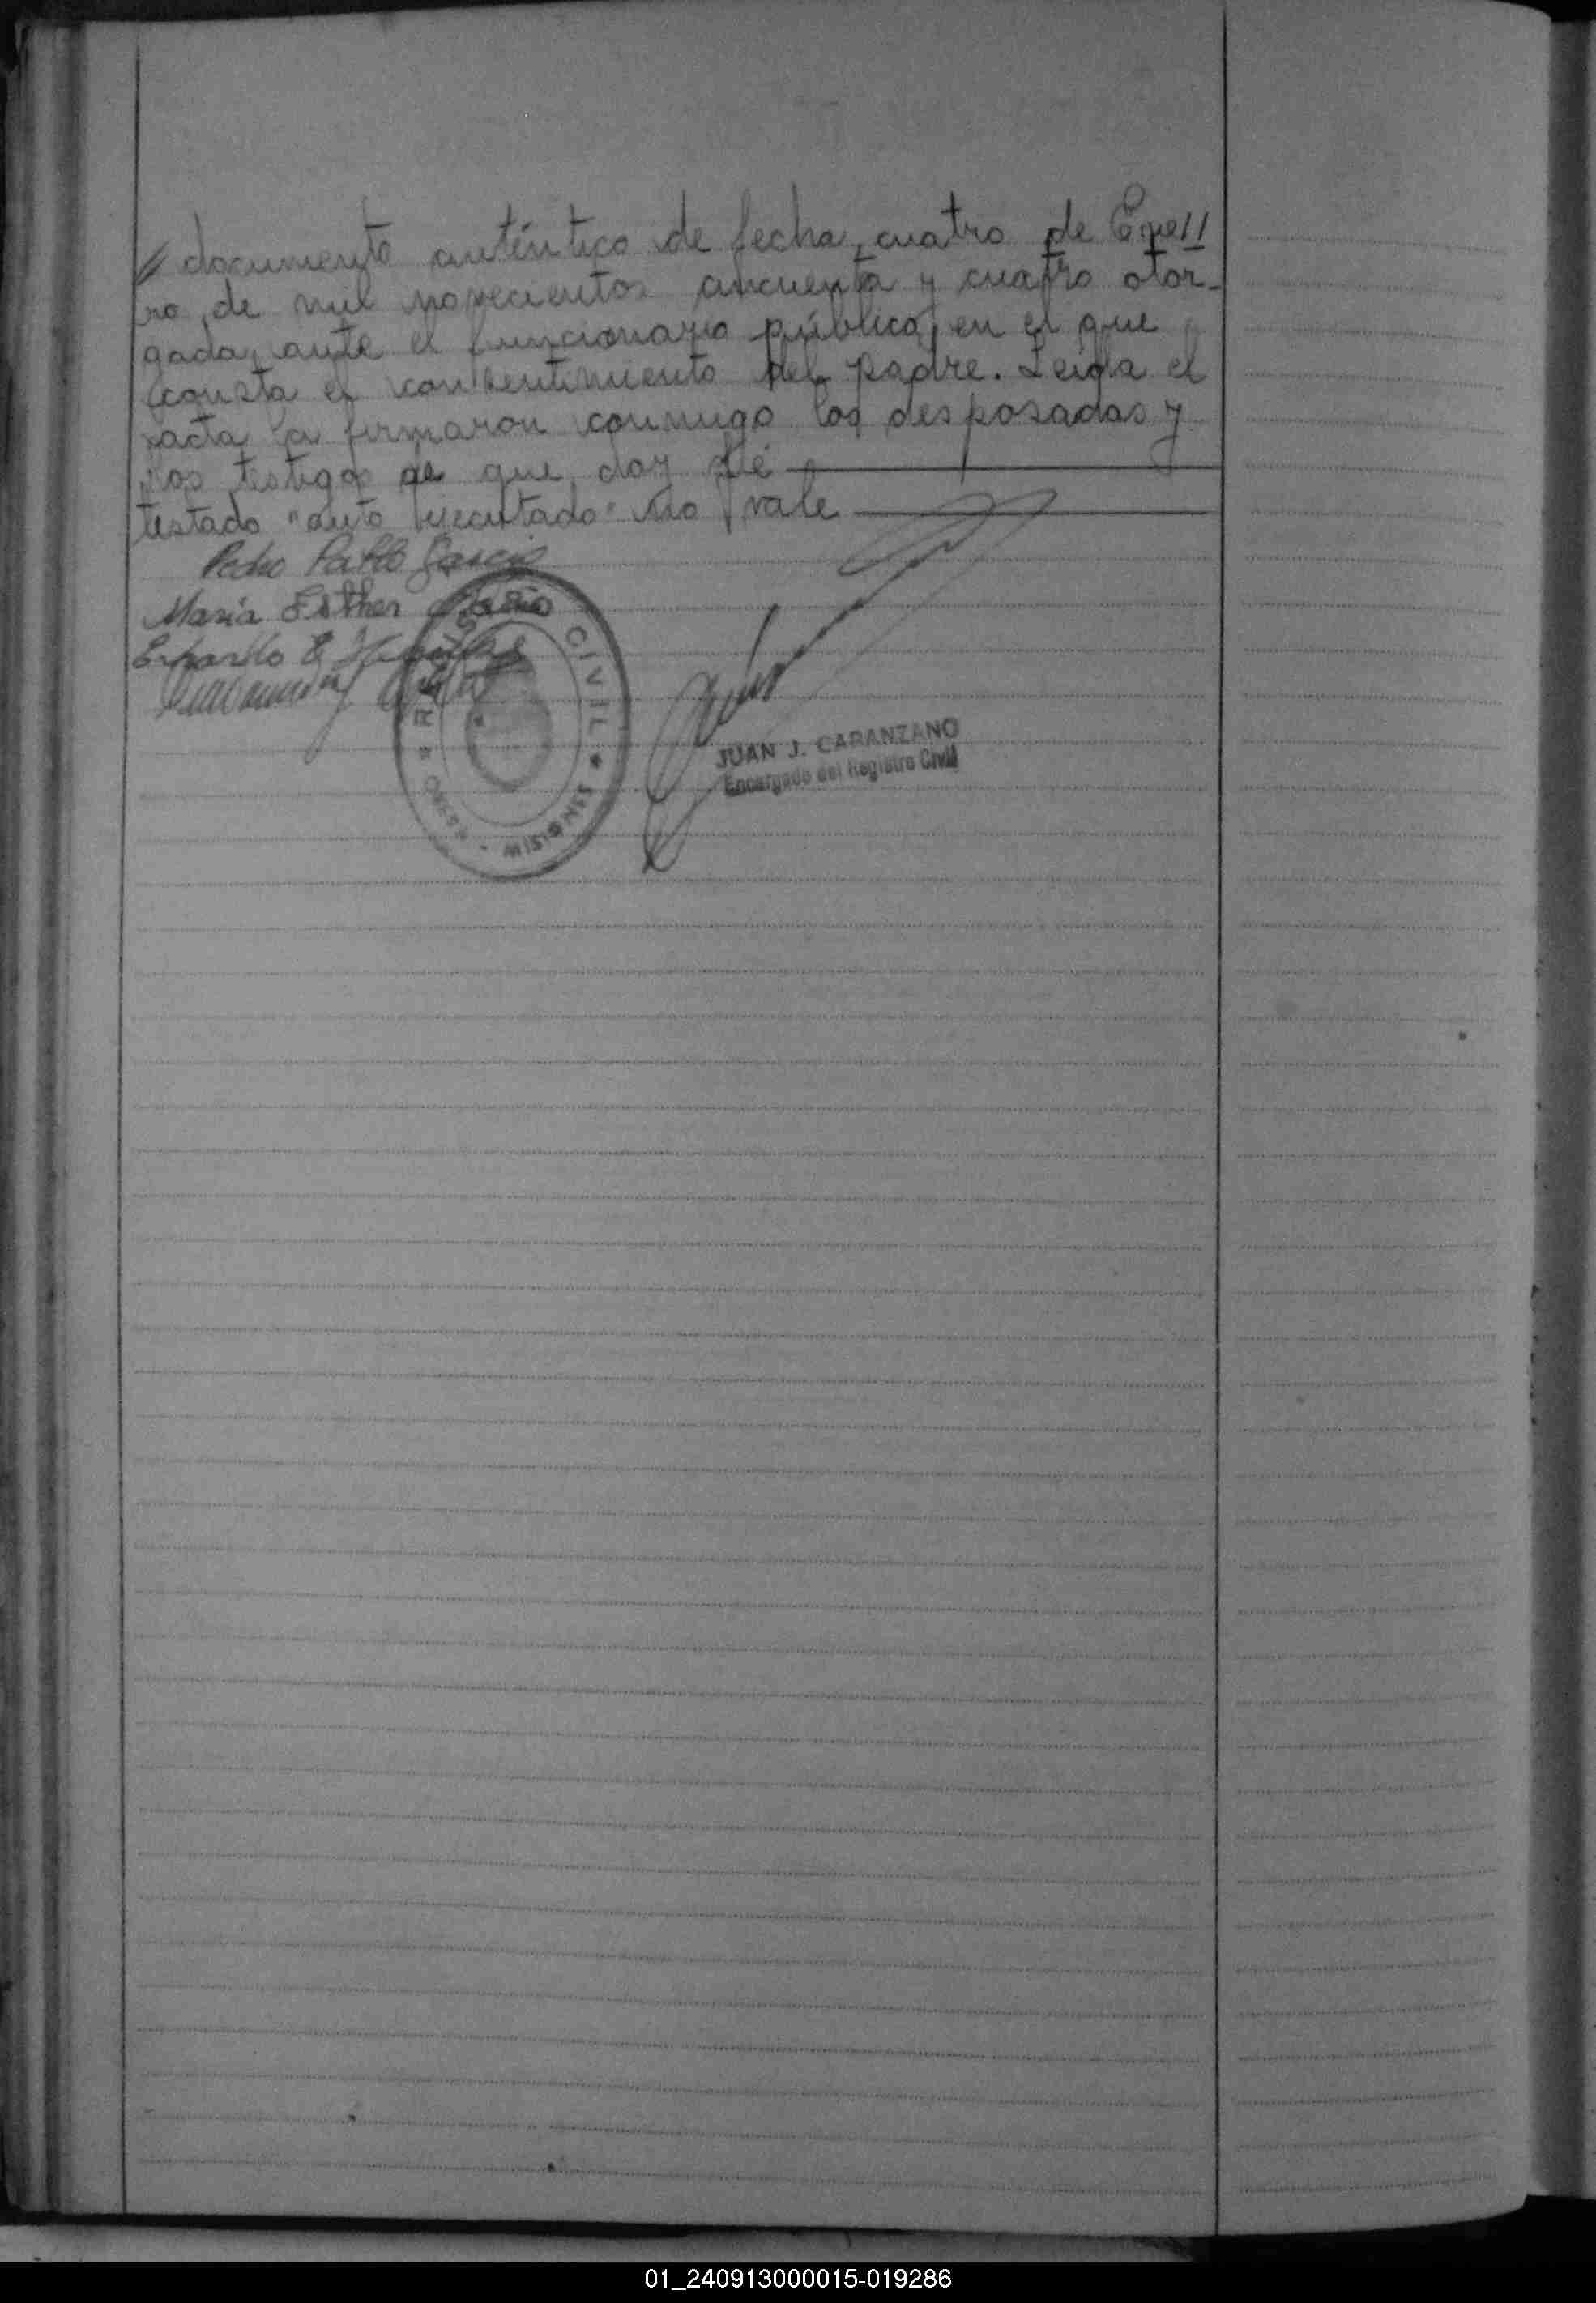 // documento auténtico de fecha cuatro de Ene//
ro de mil novecientos cincuenta y cuatro otor-
gada ante el funcionario público, en el que
consta el consentimiento del padre. Leída el
acta la firmaron conmigo los desposados y
los testigos de que doy fé
testado "auto ejecutado" No vale
Pedro Pablo Garcia
Maria Esther
CIVIL * MISIONES
JUAN J. CARANZANO
Encargado del Registro Civil
01_240913000015-019286